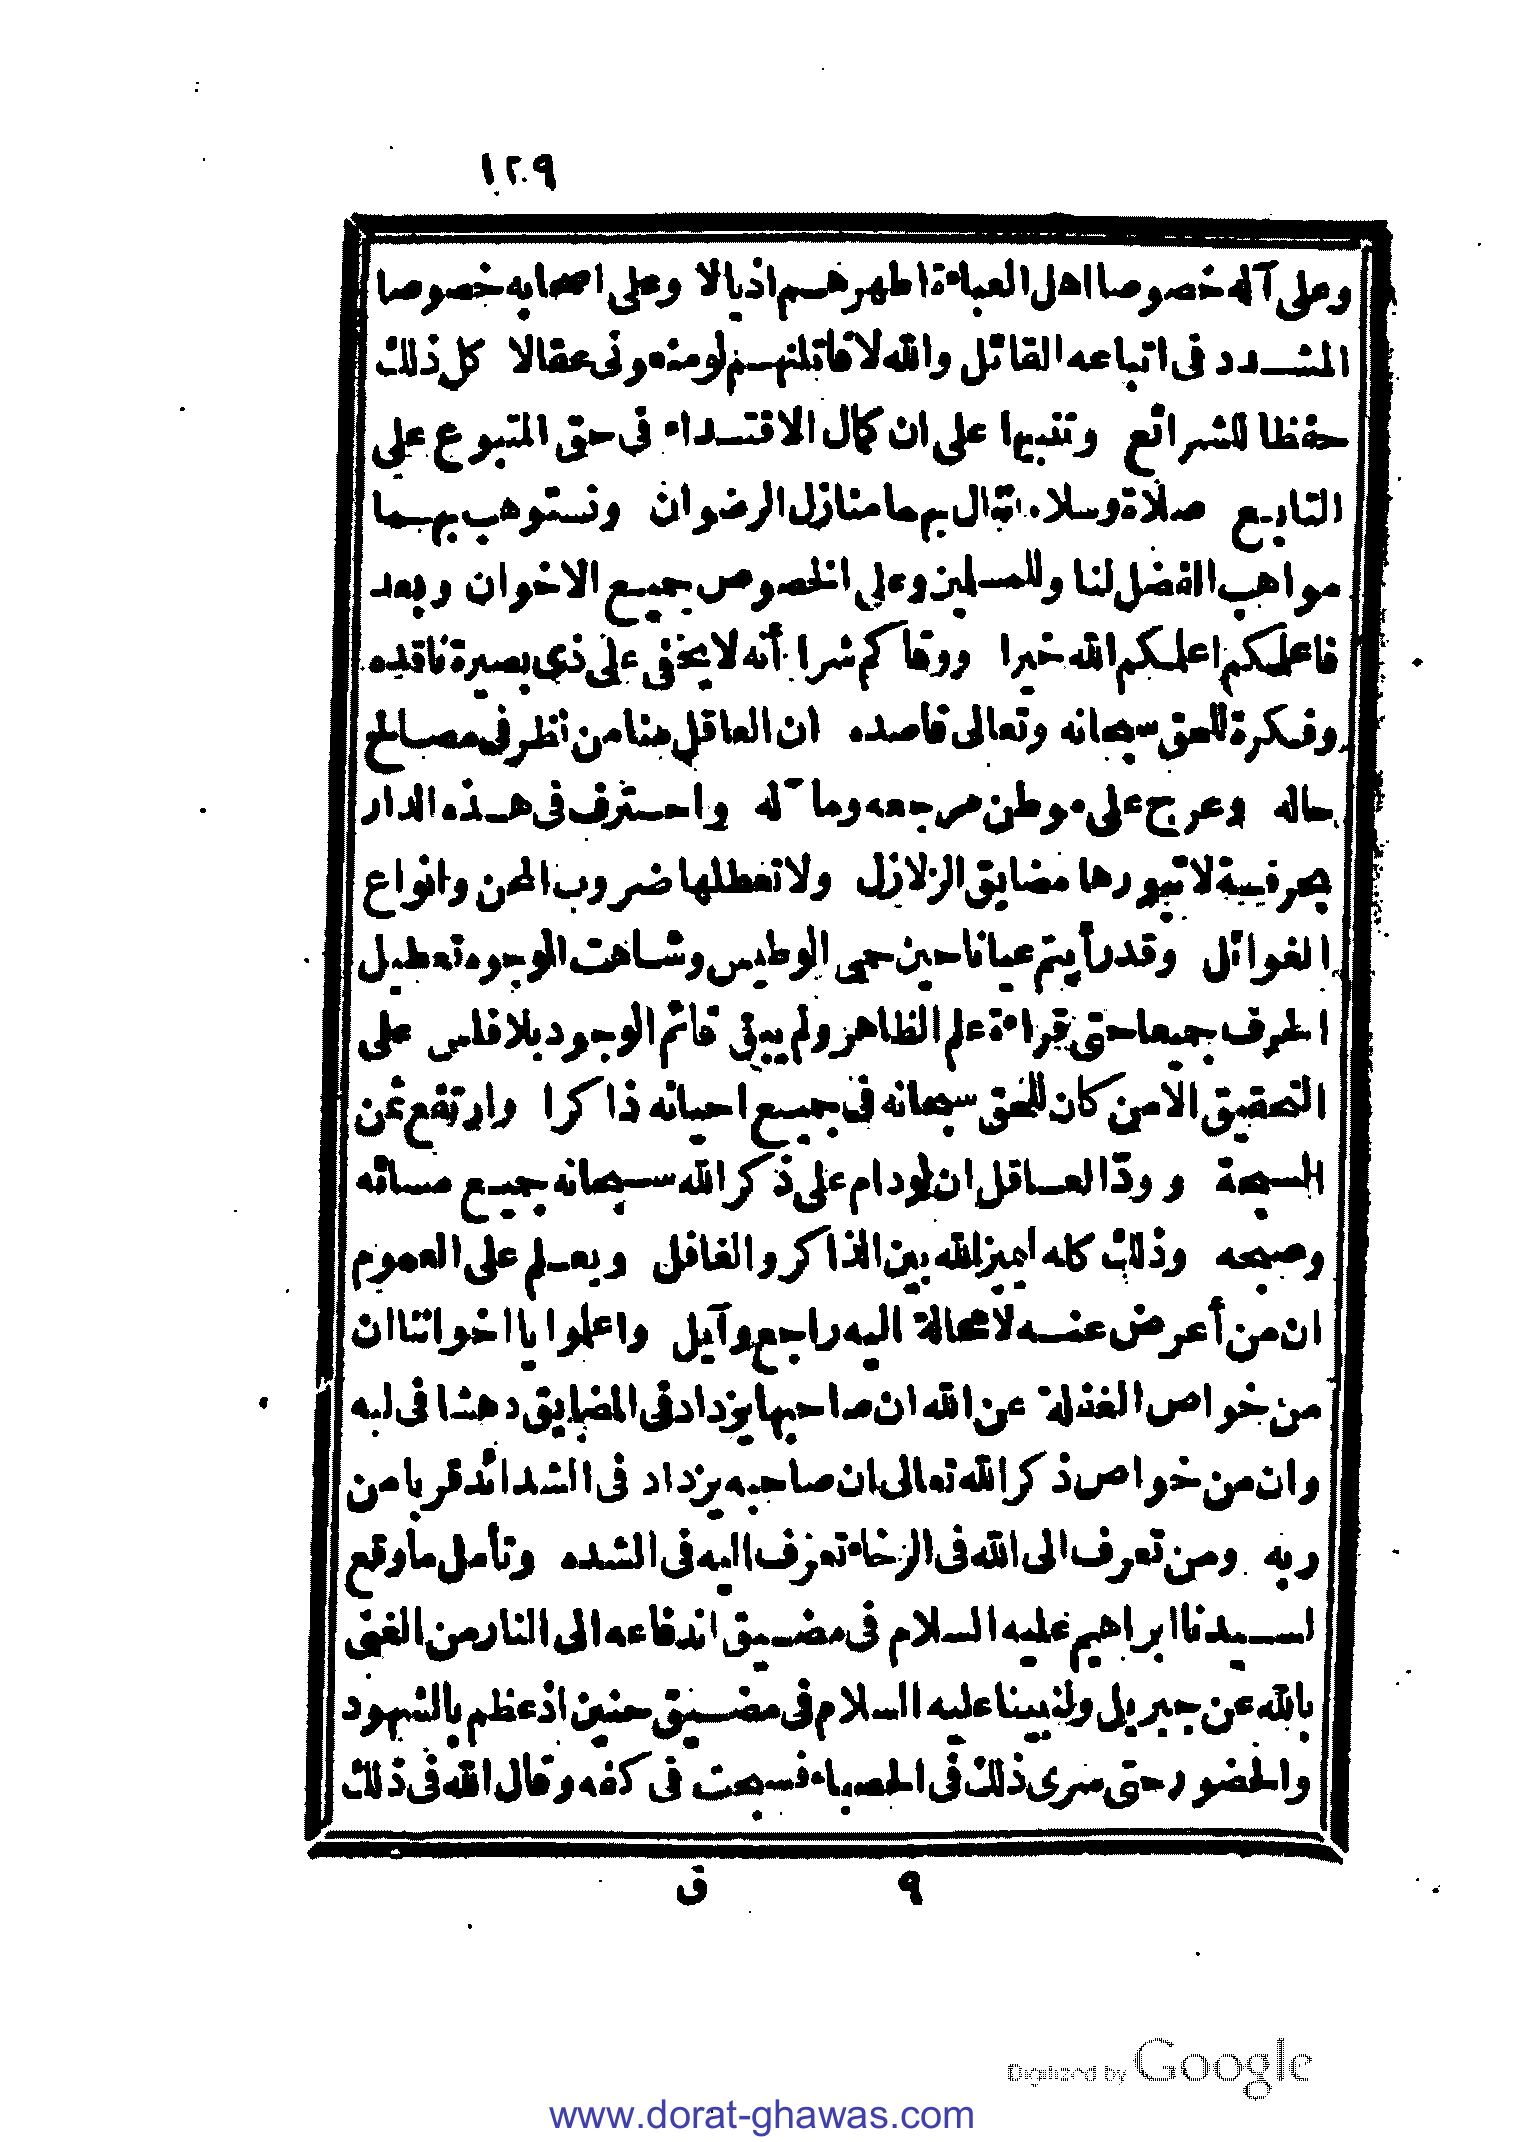 ١٢٩
وعلى آله خصوصا اهل العباءة اطهرهم اذيالا وعلى اصحابه خصوصا
المشدد فى اتباعه القائل والله لاقاتلنهم لو منعونى عقالا كل ذلك
حفظا للشرائع وتنبيها على ان كمال الاقتداء فى حق المتبوع على
التابع صلاة وسلاما تنال بهما منازل الرضوان ونستوهب بهما
مواهب الفضل لنا وللمسلمين وعلى الخصوص جميع الاخوان وبعد
فاعلمكم اعلمكم الله خيرا ووقاكم شرا أنه لا يخفى على ذى بصيرة ناقده
وفكرة للحق سبحانه وتعالى قاصده ان العاقل منا من نظر فى مصالح
حاله وعرج على موطن مرجعه ومآله واحترف فى هذه الدار
بحرفية لا تبورها مضايق الزلازل ولا تعطلها ضروب المحن وانواع
الغوائل وقد رأيتم عيانا حين حمى الوطيس وشاهت الوجوه تعطيل
الحرف جميعا حتى قراءة علم الظاهر ولم يبق قائم الوجود بلا فلس على
التحقيق الا من كان للحق سبحانه فى جميع احيانه ذاكرا وارتفع ثمن
السبحة وودّ العاقل ان لودام على ذكر الله سبحانه جميع مسائه
وصبحه وذلك كله ليميز الله بين الذاكر والغافل ويعلم على العموم
ان من أعرض عنه لا محالة اليه راجع وآيل واعلموا يا اخواننا ان
من خواص الغفلة عن الله ان صاحبها يزداد فى المضايق دهشا فى لبه
وان من خواص ذكر الله تعالى ان صاحبه يزداد فى الشدائد قربا من
ربه ومن تعرف الى الله فى الرخاء تعرف اليه فى الشده وتأمل ما وقع
لسيدنا ابراهيم عليه السلام فى مضيق اندفاعه الى النار من الغنى
بالله عن جبريل ولنبينا عليه السلام فى مضيق حنين اذ عظم بالشهود
والحضور حتى سرى ذلك فى الحصباء فسبحت فى كفه وقال الله فى ذلك
٩ ق
Digitized by Google
www.dorat-ghawas.com